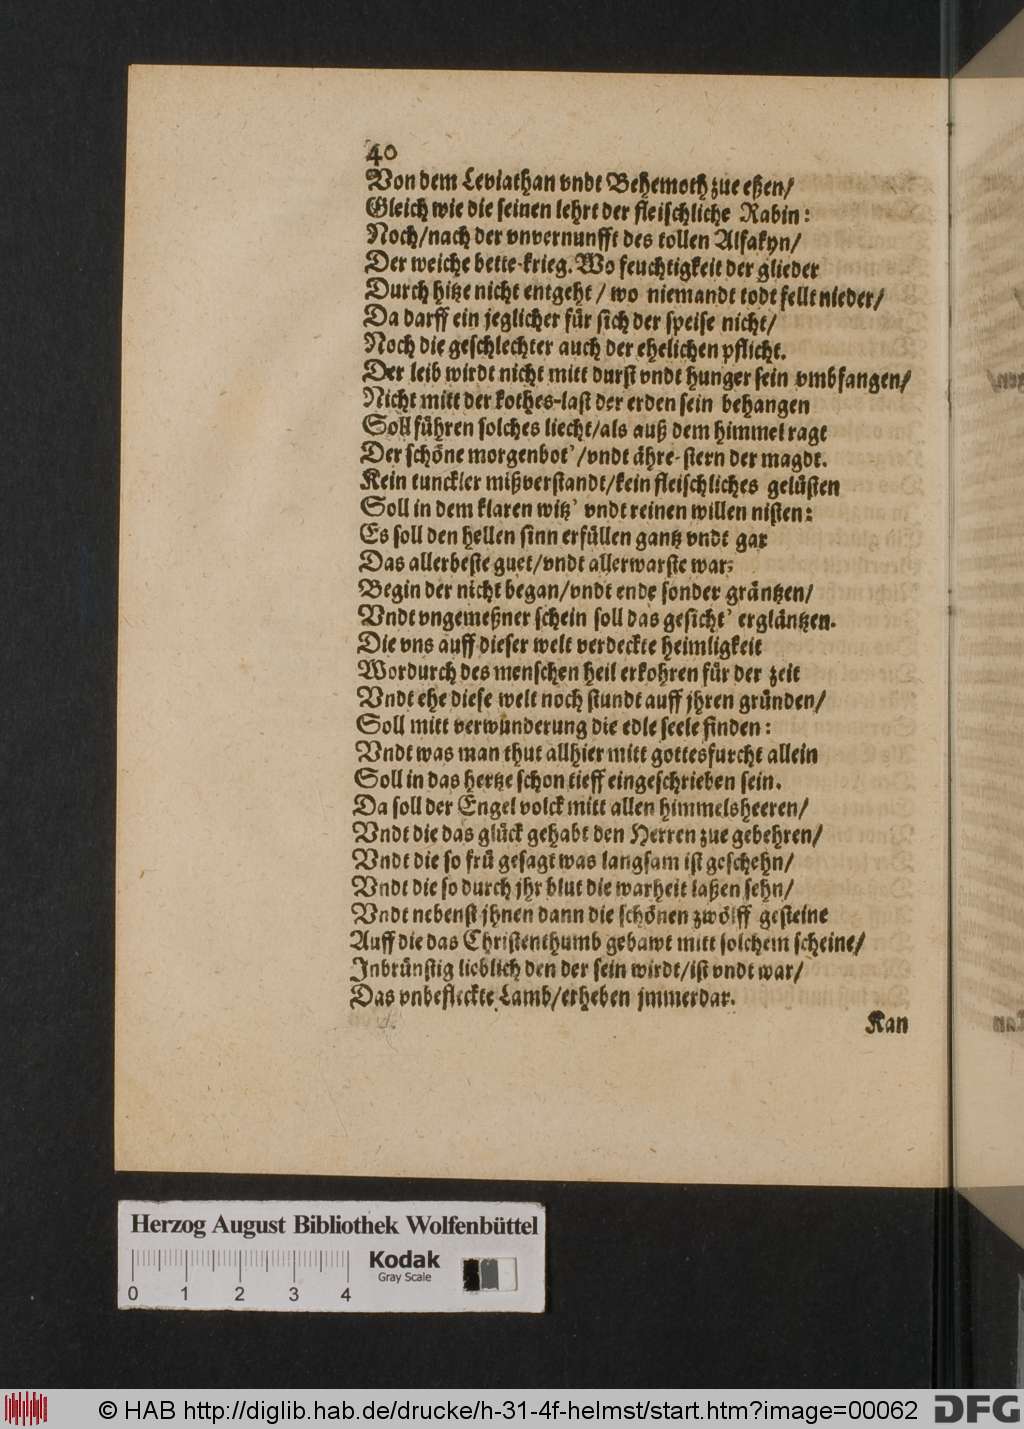 40
Von dem Leviathan vndt Behemoth zue eßen/
Gleich wie die seinen lehrt der fleischliche Rabin:
Noch/nach der vnvernunfft des tollen Alfakyn/
Der weiche bette-krieg. Wo feuchtigkeit der glieder
Durch hitze nicht entgeht / wo niemandt todt fellt nieder/
Da darff ein jeglicher für sich der speise nicht/
Noch die geschlechter auch der ehelichen pflicht.
Der leib wirdt nicht mitt durst vndt hunger sein vmbfangen/
Nicht mitt der kothes-last der erden sein behangen
Soll führen solches liecht/als auß dem himmel ragt
Der schöne morgenbot'/vndt ähre-stern der magdt.
Kein tunckler mißverstandt/kein fleischliches gelüsten
Soll in dem klaren witz' vndt reinen willen nisten:
Es soll den hellen sinn erfüllen gantz vndt gar
Das allerbeste guet/vndt allerwarste war;
Begin der nicht began/vndt ende sonder gräntzen/
Vndt vngemeßner schein soll das gesicht' ergläntzen.
Die vns auff dieser welt verdeckte heimligkeit
Wordurch des menschen heil erkohren für der zeit
Vndt ehe diese welt noch stundt auff jhren gründen/
Soll mitt verwunderung die edle seele finden:
Vndt was man thut allhier mitt gottesfurcht allein
Soll in das hertze schon tieff eingeschrieben sein.
Da soll der Engel volck mitt allen himmelsheeren/
Vndt die das glück gehabt den Herren zue gebehren/
Vndt die so frü gesagt was langsam ist geschehn/
Vndt die so durch jhr blut die warheit laßen sehn/
Vndt nebenst jhnen dann die schönen zwölff gesteine
Auff die das Christenthumb gebawt mitt solchem scheine/
Inbrünstig lieblich den der sein wirdt/ist vndt war/
Das vnbefleckte Lamb/erheben jmmerdar.
Kan
Herzog August Bibliothek Wolfenbüttel
Kodak
Gray Scale
0 1 2 3 4
© HAB http://diglib.hab.de/drucke/h-31-4f-helmst/start.htm?image=00062
DFG